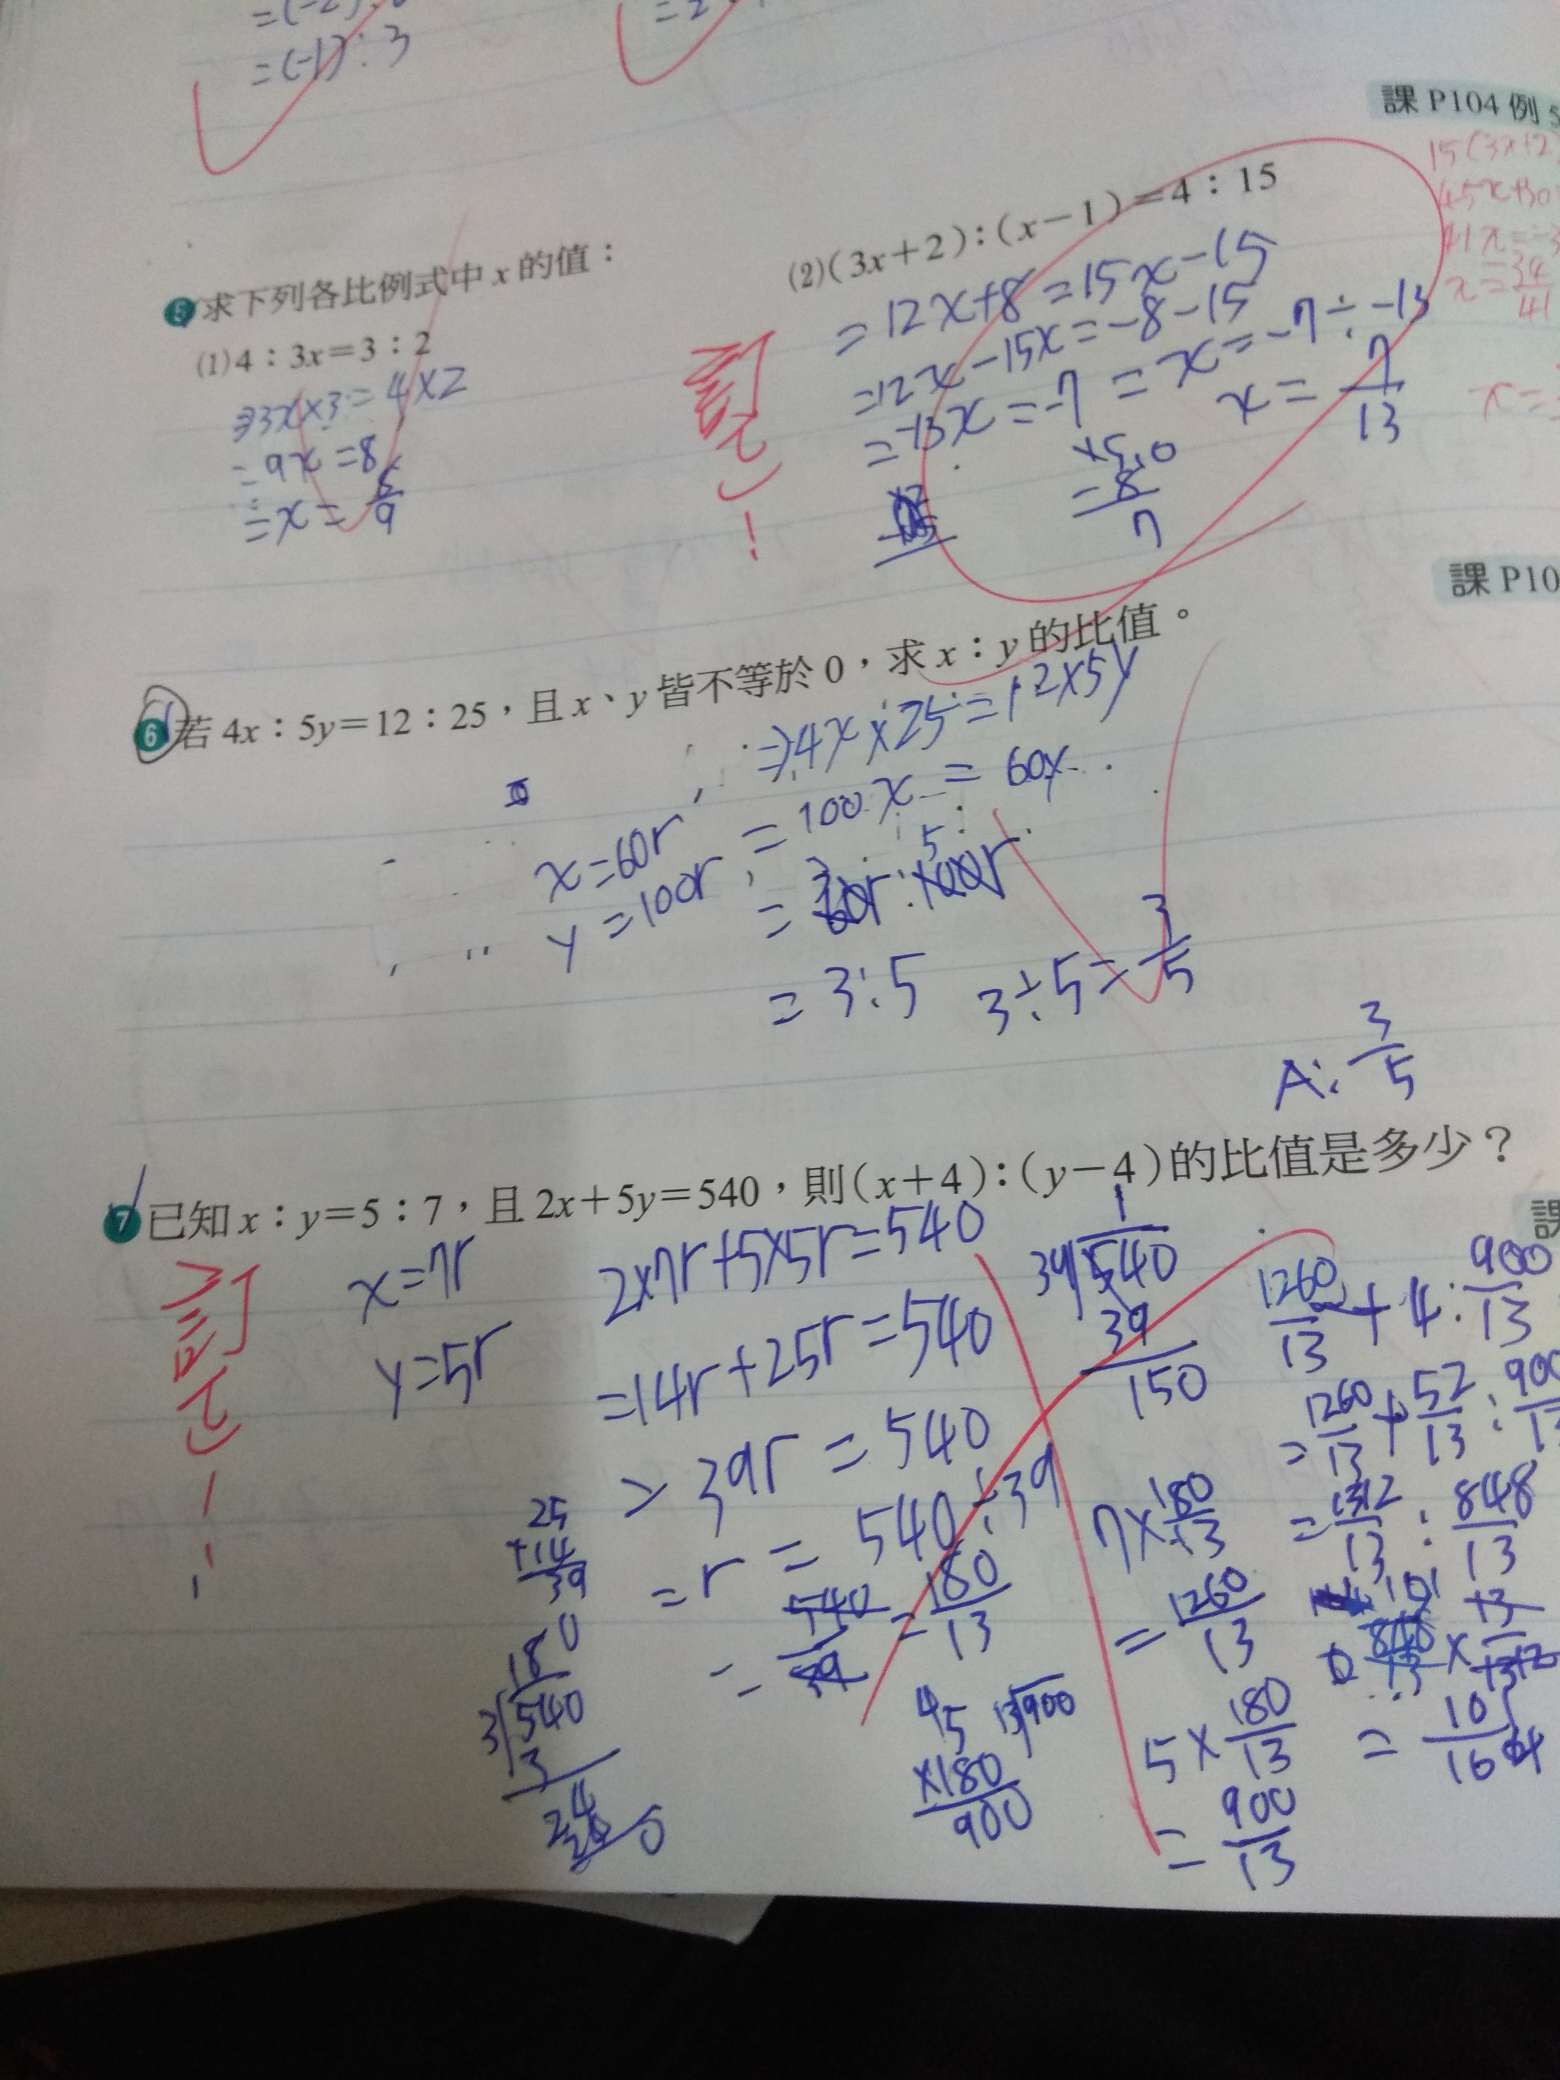 =(-1):3
課 P104 例 5
15(3x+2
45x+30
41x=-3
x=34/41
5 求下列各比例式中 x 的值：
(1) 4：3x＝3：2
⇒3x×3=4×2
=9x=8
=x=8/9
(2) (3x＋2)：(x－1)＝4：15
=12x+8=15x-15
=12x-15x=-8-15
=-13x=-7=x=-7÷-13
x=7/13
訂正!
課 P10
6 若 4x：5y＝12：25，且 x、y 皆不等於 0，求 x：y 的比值。
⇒4x×25=12×5y
=100x=60y
x=60r
y=100r
=60r:100r
=3:5 3÷5=3/5
A:3/5
7 已知 x：y＝5：7，且 2x＋5y＝540，則(x＋4)：(y－4)的比值是多少？
訂正!
x=7r
y=5r
2×7r+5×5r=540
=14r+25r=540
39r=540
=r=540÷39
=540/39=180/13
25
+14
39
180
3)540
3
24
39)540
39
150
45
×180
900
13)900
7×180/13
=1260/13
5×180/13
=900/13
1260/13+4:900/13
=1260/13+52/13:900
=1312/13:848/13
848/13×13/1312